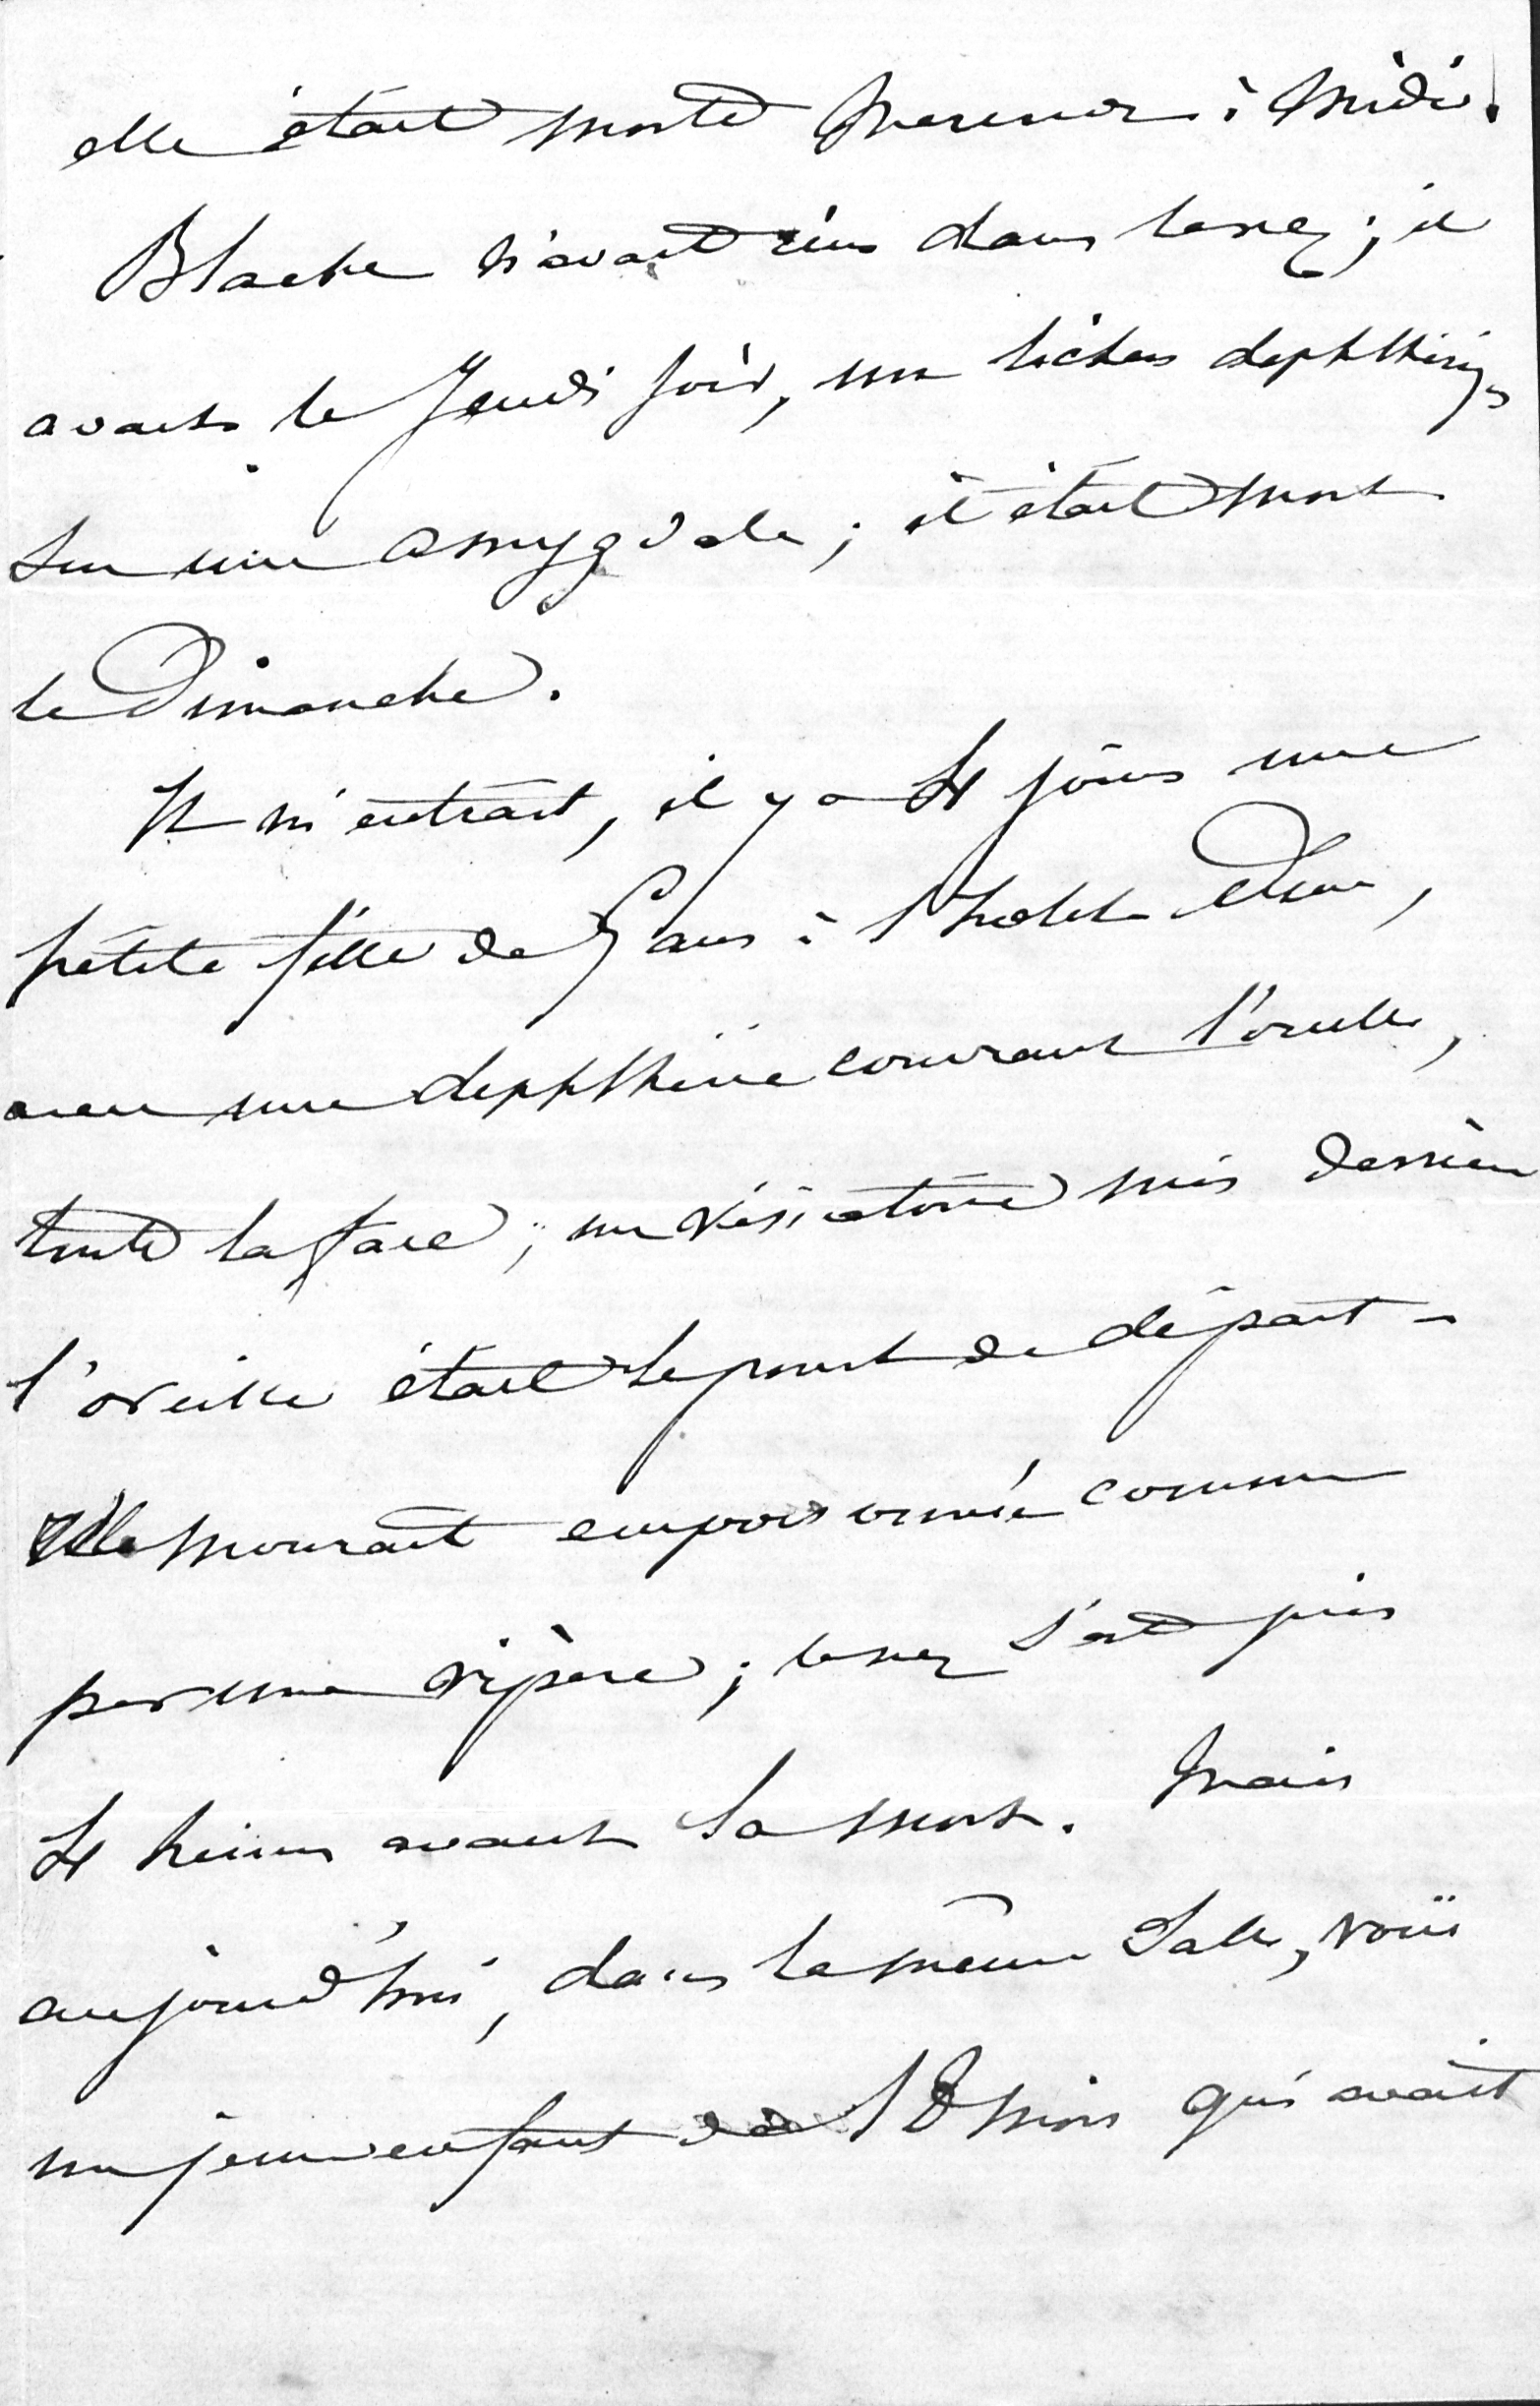 elle était morte mercredi à midi.
Blache n'avait rien dans le nez ; il
avait le Jeudi soir, un lichen diphthériq.
sur une amygdale ; il était mort
le Dimanche.
Il m'entrait, il y a 4 jours une
petite fille de 5 ans à l'hotel Dieu,
avec une diphthérie couvrant l'oreille,
toute la face ; un vésicatoire mis derrière
l'oreille était le point de départ –
Elle mourait empoisonnée comme
par une vipère ; le nez s'est pris
4 heures avant la mort. Mais
aujourd'hui, dans la même salle, voici
un jeune enfant de 18 mois qui avait